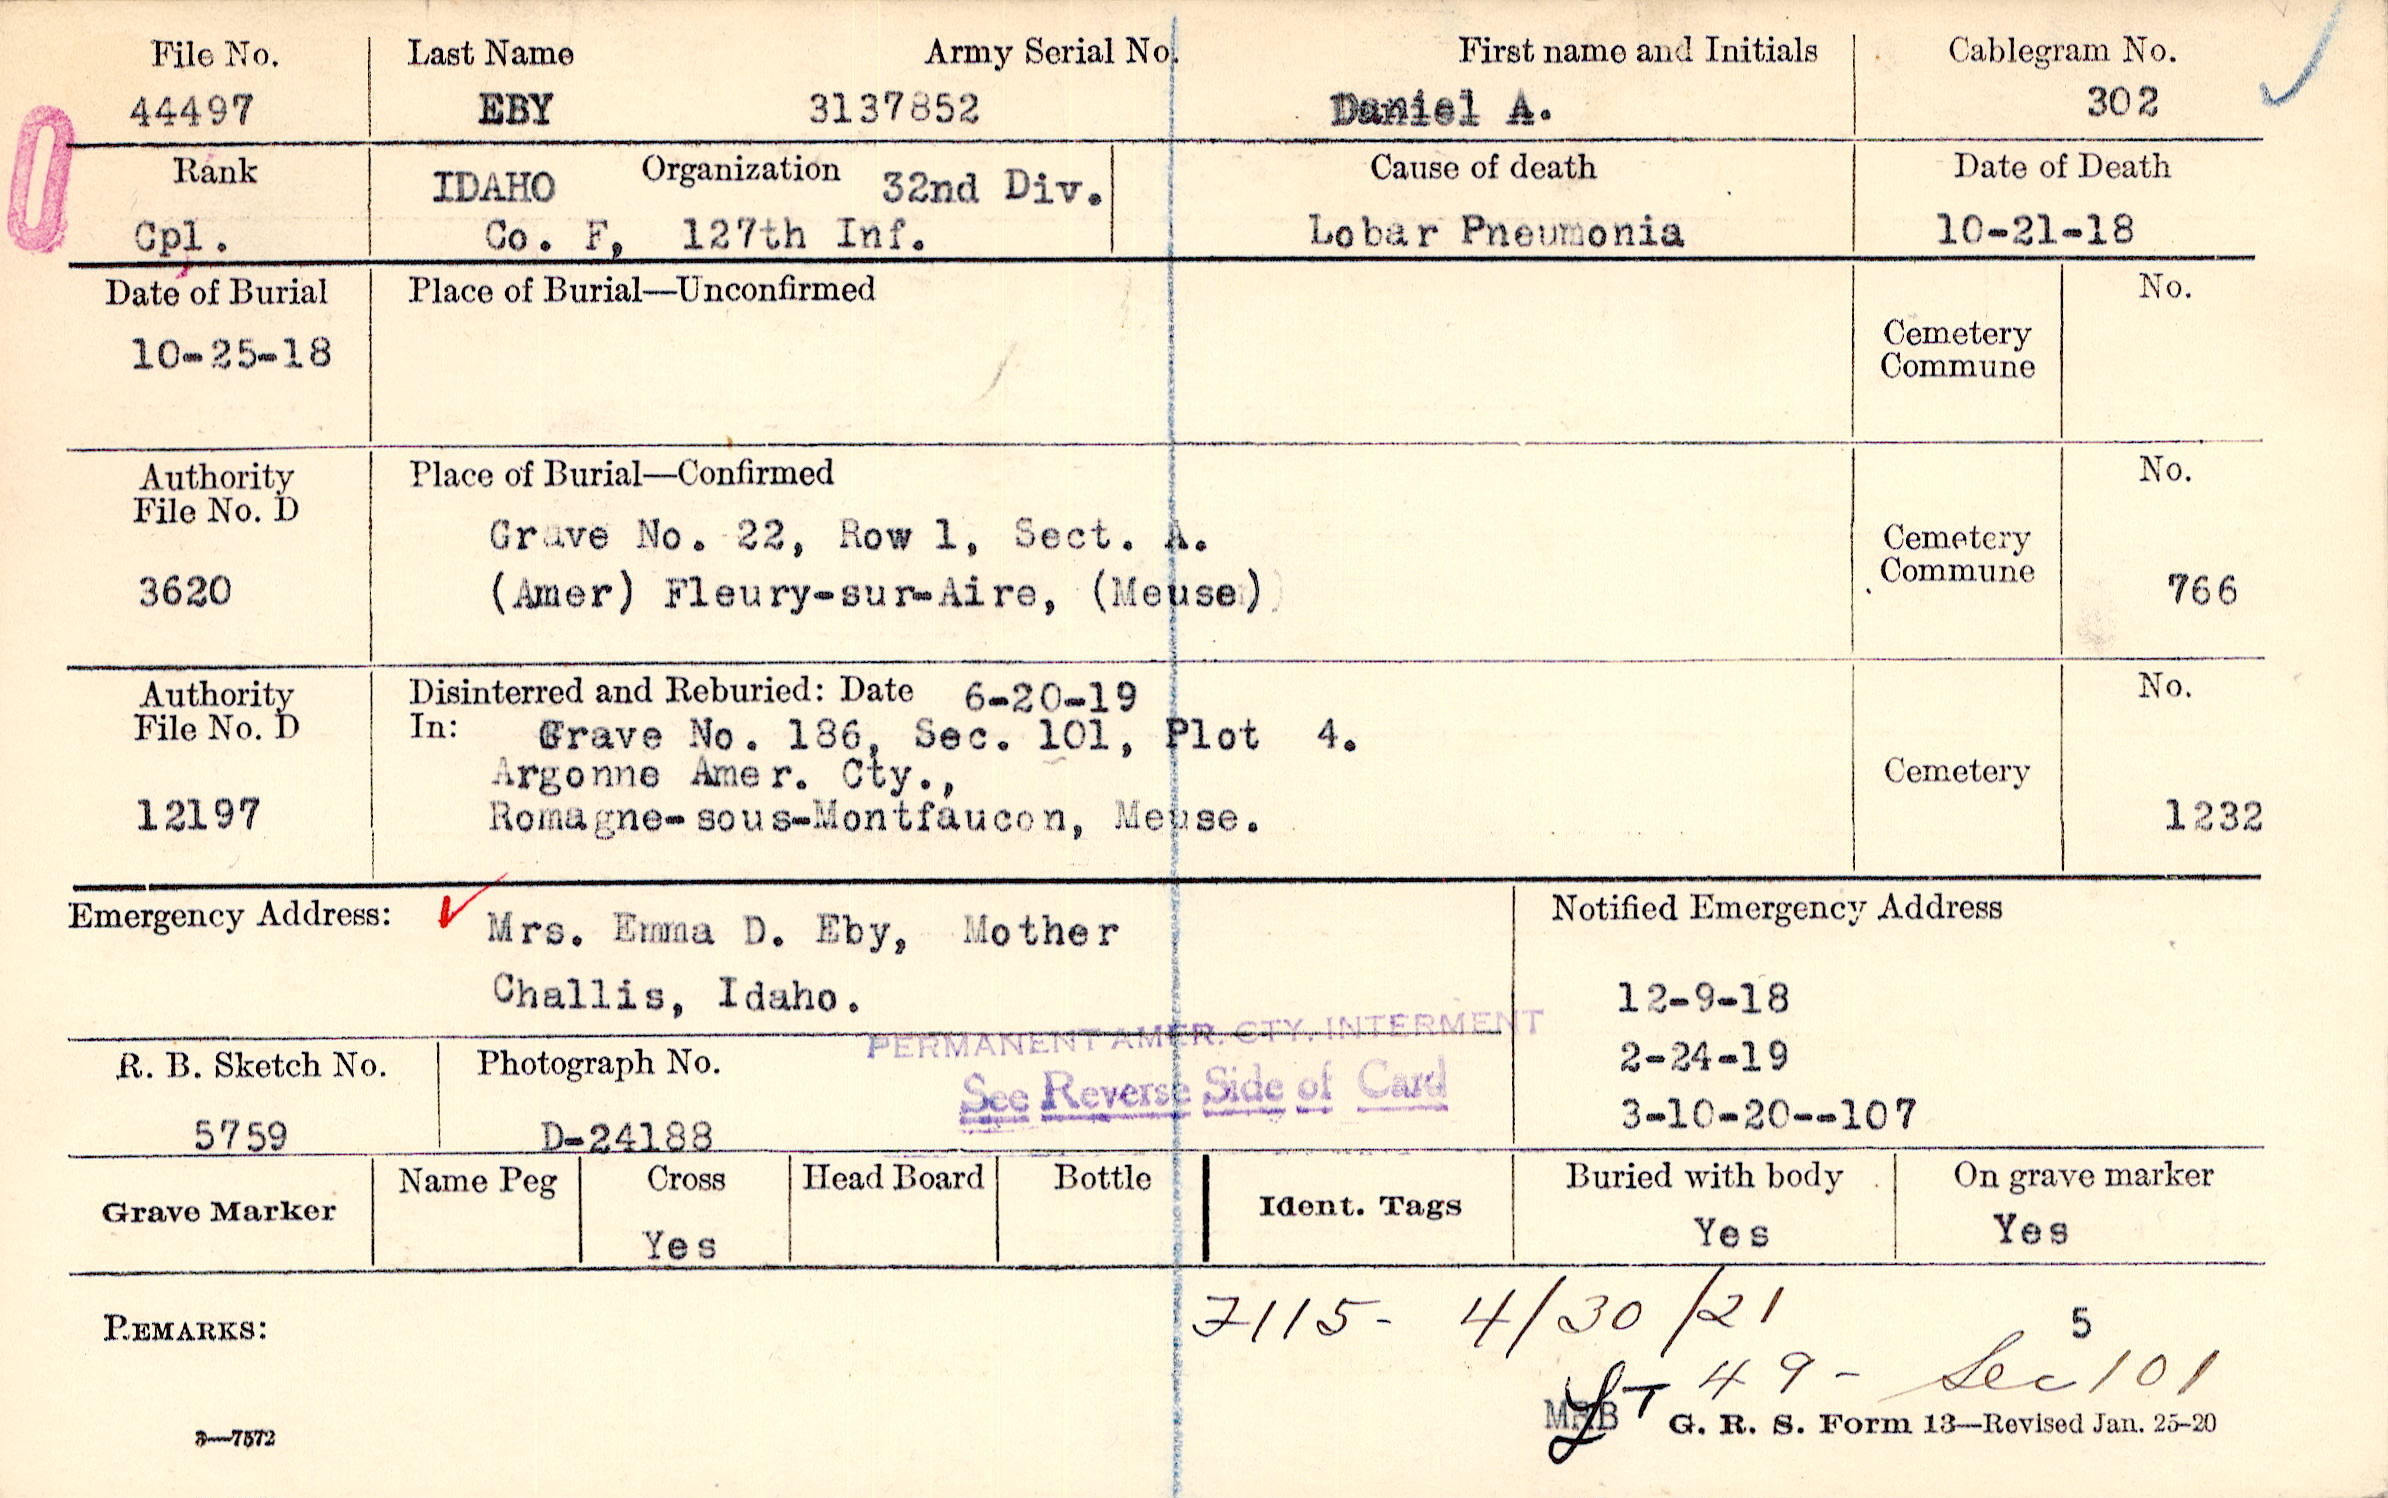 File No. Last Name Army Serial No. First name and Initials Cablegram No.
44497 EBY 3137852 Daniel A. 302
Rank IDAHO Organization 32nd Div. Cause of death Date of Death
Cpl. Co. F, 127th Inf. Lobar Pneumonia 10-21-18
Date of Burial Place of Burial—Unconfirmed No.
10-25-18
Cemetery
Commune
Authority Place of Burial—Confirmed No.
File No. D
Grave No. 22, Row 1, Sect. A.
Cemetery
Commune
3620 (Amer) Fleury-sur-Aire, (Meuse) 766
Authority Disinterred and Reburied: Date 6-20-19 No.
File No. D In: Grave No. 186, Sec. 101, Plot 4.
Argonne Amer. Cty., Cemetery
12197 Romagne-sous-Montfaucon, Meuse. 1232
Emergency Address: Mrs. Emma D. Eby, Mother Notified Emergency Address
Challis, Idaho. 12-9-18
PERMANENT AMER. CTY. INTERMENT
R. B. Sketch No. Photograph No. 2-24-19
See Reverse Side of Card
5759 D-24188 3-10-20--107
Grave Marker Name Peg Cross Head Board Bottle Ident. Tags Buried with body On grave marker
Yes Yes Yes
REMARKS: 7115- 4/30/21 5
49- Sec 101
MHB G. R. S. Form 13—Revised Jan. 25-20
3—7572